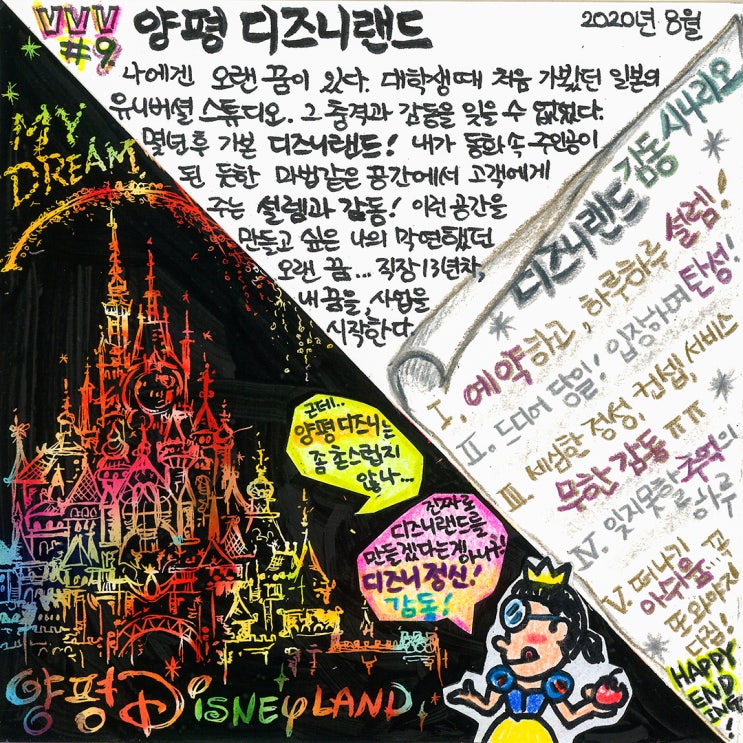 VVV
#9 양평 디즈니랜드
2020년 8월
나에겐 오랜 꿈이 있다. 대학생때 처음 가봤던 일본의
유니버셜 스튜디오. 그 충격과 감동을 잊을 수 없었다.
몇년후 가본 디즈니랜드! 내가 동화 속 주인공이
된 듯한 마법같은 공간에서 고객에게
주는 설렘과 감동! 이런 공간을
만들고 싶은 나의 막연했던
오랜 꿈... 직장13년차,
내 꿈을, 사업을
시작한다.
MY
DREAM.
디즈니랜드 감동 시나리오
I. 예약하고, 하루하루 설렘!
II. 드디어 당일! 입장하며 탄성!
III. 세심한 정성, 컨셉, 서비스
무한 감동 ㅠㅠ
IV. 잊지못할 추억의
하루
V. 떠나기
아쉬움..
꼭
또 와야지
다짐!
HAPPY
END
ING!
근데..
양평 디즈니는
좀 촌스럽지
않나...
진짜로
디즈니랜드를
만들겠다는게 아니라!
디즈니 정신!
감동!
양평 DISNEYLAND